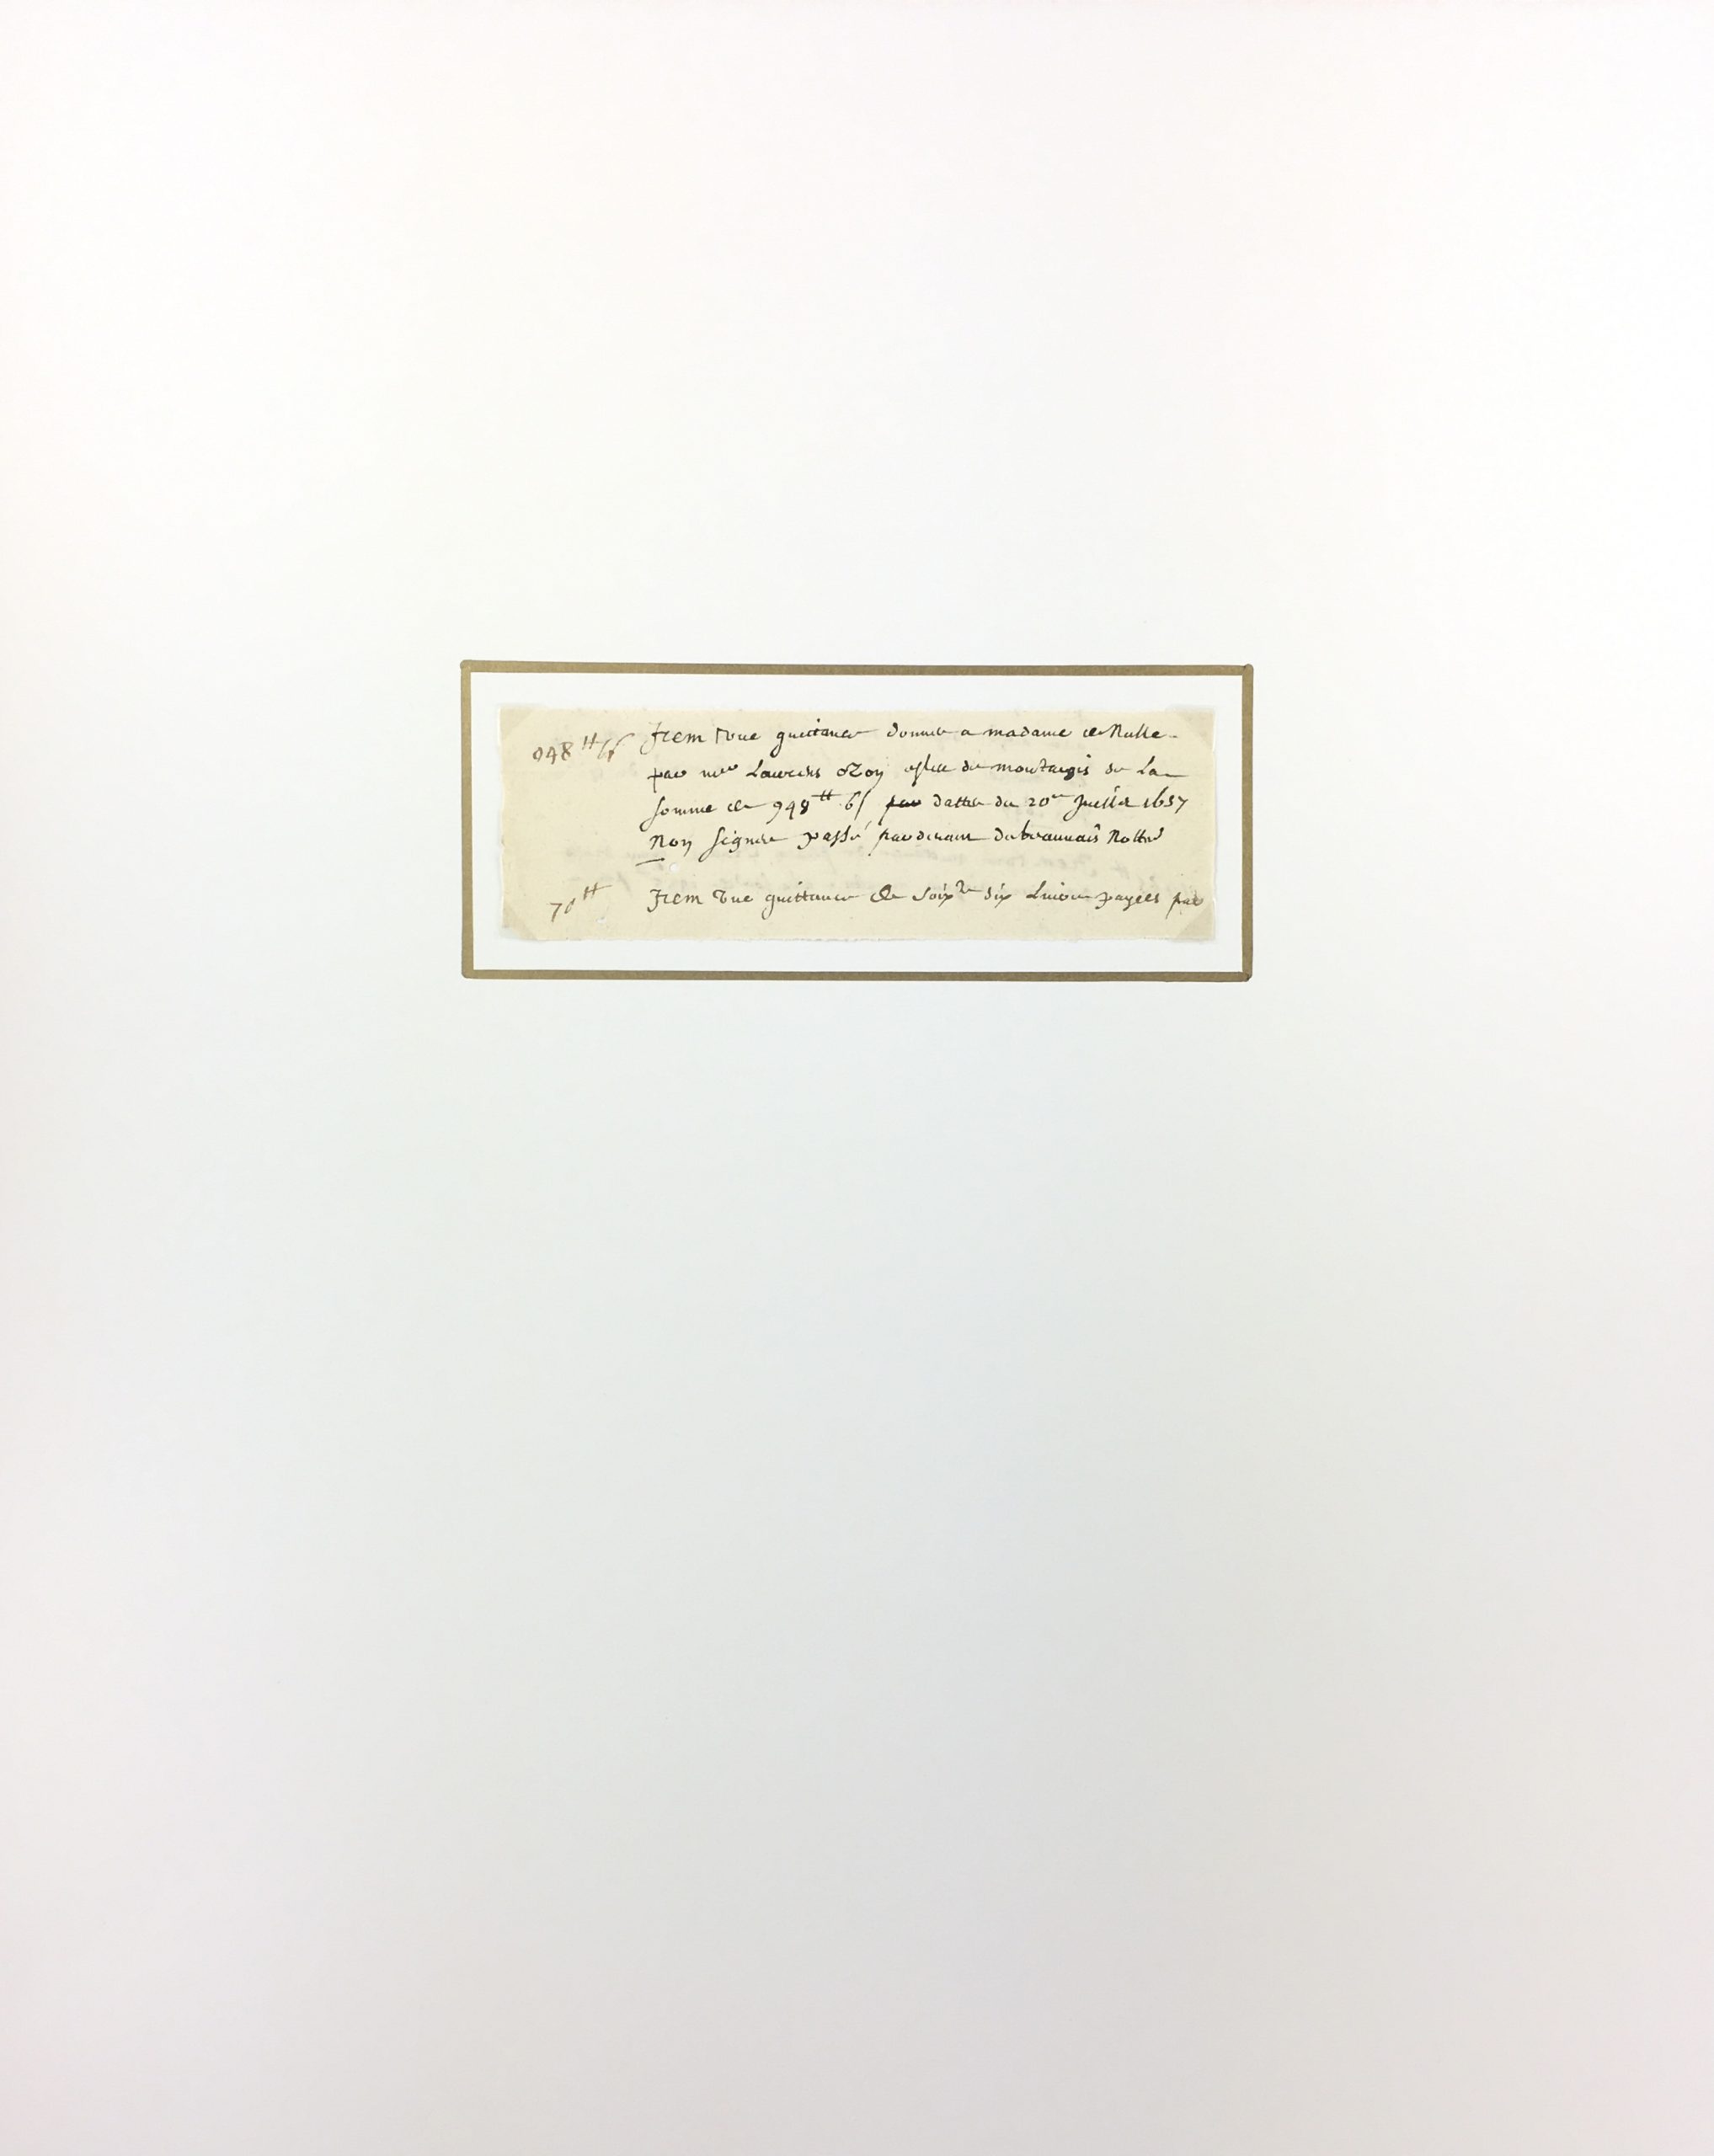 948 ₶ 6 s Item Une quittance donnee a madame de
par Laurens ozon esleu de montargis de la
somme de 948 ₶ 6 s dattee du 20 Juillet 1657
Non signee passé pardevant debeauvais
70 ₶ Item Une quittance de Soix.te dix Livres payees par